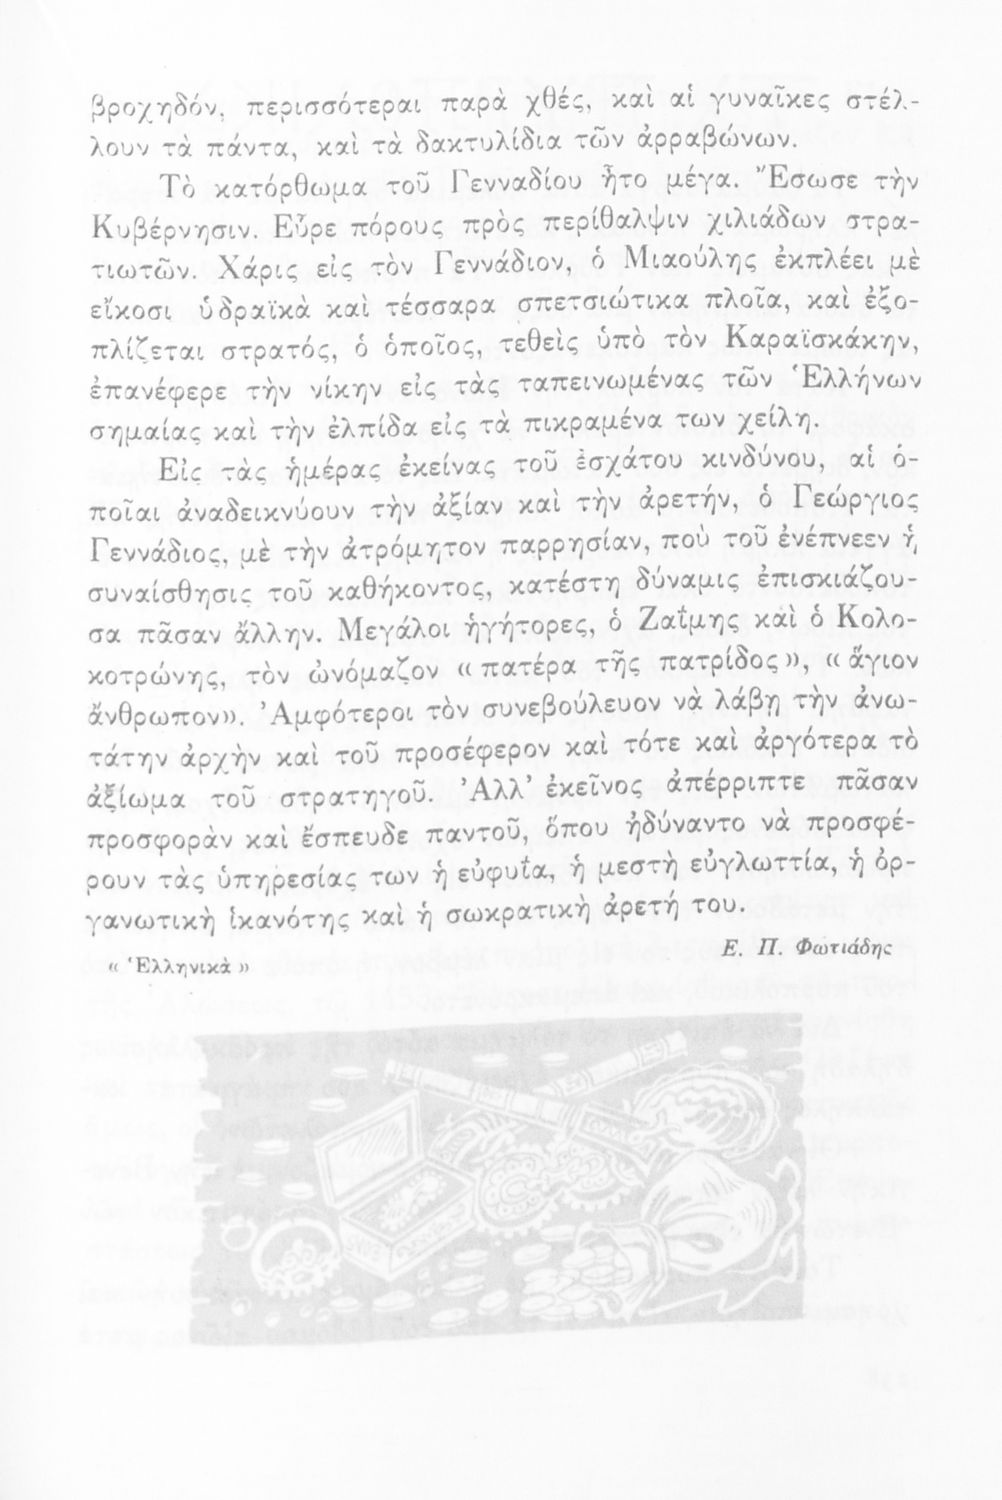 βροχηδόν, περισσότεραι παρὰ χθές, καὶ αἱ γυναῖκες στέλ-
λουν τὰ πάντα, καὶ τὰ δακτυλίδια τῶν ἀρραβώνων.
Τὸ κατόρθωμα τοῦ Γενναδίου ἦτο μέγα. Ἔσωσε τὴν
Κυβέρνησιν. Εὗρε πόρους πρὸς περίθαλψιν χιλιάδων στρα-
τιωτῶν. Χάρις εἰς τὸν Γεννάδιον, ὁ Μιαούλης ἐκπλέει μὲ
εἴκοσι ὑδραϊκὰ καὶ τέσσαρα σπετσιώτικα πλοῖα, καὶ ἐξο-
πλίζεται στρατός, ὁ ὁποῖος, τεθεὶς ὑπὸ τὸν Καραϊσκάκην,
ἐπανέφερε τὴν νίκην εἰς τὰς ταπεινωμένας τῶν Ἑλλήνων
σημαίας καὶ τὴν ἐλπίδα εἰς τὰ πικραμένα των χείλη.
Εἰς τὰς ἡμέρας ἐκείνας τοῦ ἐσχάτου κινδύνου, αἱ ὁ-
ποῖαι ἀναδεικνύουν τὴν ἀξίαν καὶ τὴν ἀρετήν, ὁ Γεώργιος
Γεννάδιος, μὲ τὴν ἀτρόμητον παρρησίαν, ποὺ τοῦ ἐνέπνεεν ἡ
συναίσθησις τοῦ καθήκοντος, κατέστη δύναμις ἐπισκιάζου-
σα πᾶσαν ἄλλην. Μεγάλοι ἡγήτορες, ὁ Ζαΐμης καὶ ὁ Κολο-
κοτρώνης, τὸν ὠνόμαζον «πατέρα τῆς πατρίδος», «ἅγιον
ἄνθρωπον». Ἀμφότεροι τὸν συνεβούλευον νὰ λάβῃ τὴν ἀνω-
τάτην ἀρχὴν καὶ τοῦ προσέφερον καὶ τότε καὶ ἀργότερα τὸ
ἀξίωμα τοῦ στρατηγοῦ. Ἀλλ’ ἐκεῖνος ἀπέρριπτε πᾶσαν
προσφορὰν καὶ ἔσπευδε παντοῦ, ὅπου ἠδύναντο νὰ προσφέ-
ρουν τὰς ὑπηρεσίας των ἡ εὐφυΐα, ἡ μεστὴ εὐγλωττία, ἡ ὀρ-
γανωτικὴ ἱκανότης καὶ ἡ σωκρατικὴ ἀρετή του.
«Ἑλληνικὰ» Ε. Π. Φωτιάδης